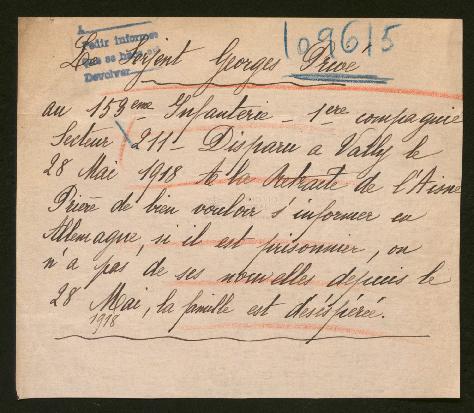 109615
Pedir informes
que se hará en
Devolver
Le Serjent Georges Privé
au 153eme Infanterie - 1ere compagnie
Secteur 211 - Disparu a Vailly le
28 Mai 1918 A la Retraite de l'Aisne
Prière de bien vouloir s'informer en
Allemagne, si il est prisonnier, on
n'a pas de ses nouvelles depuis le
28 Mai, la famille est desésperée.
1918